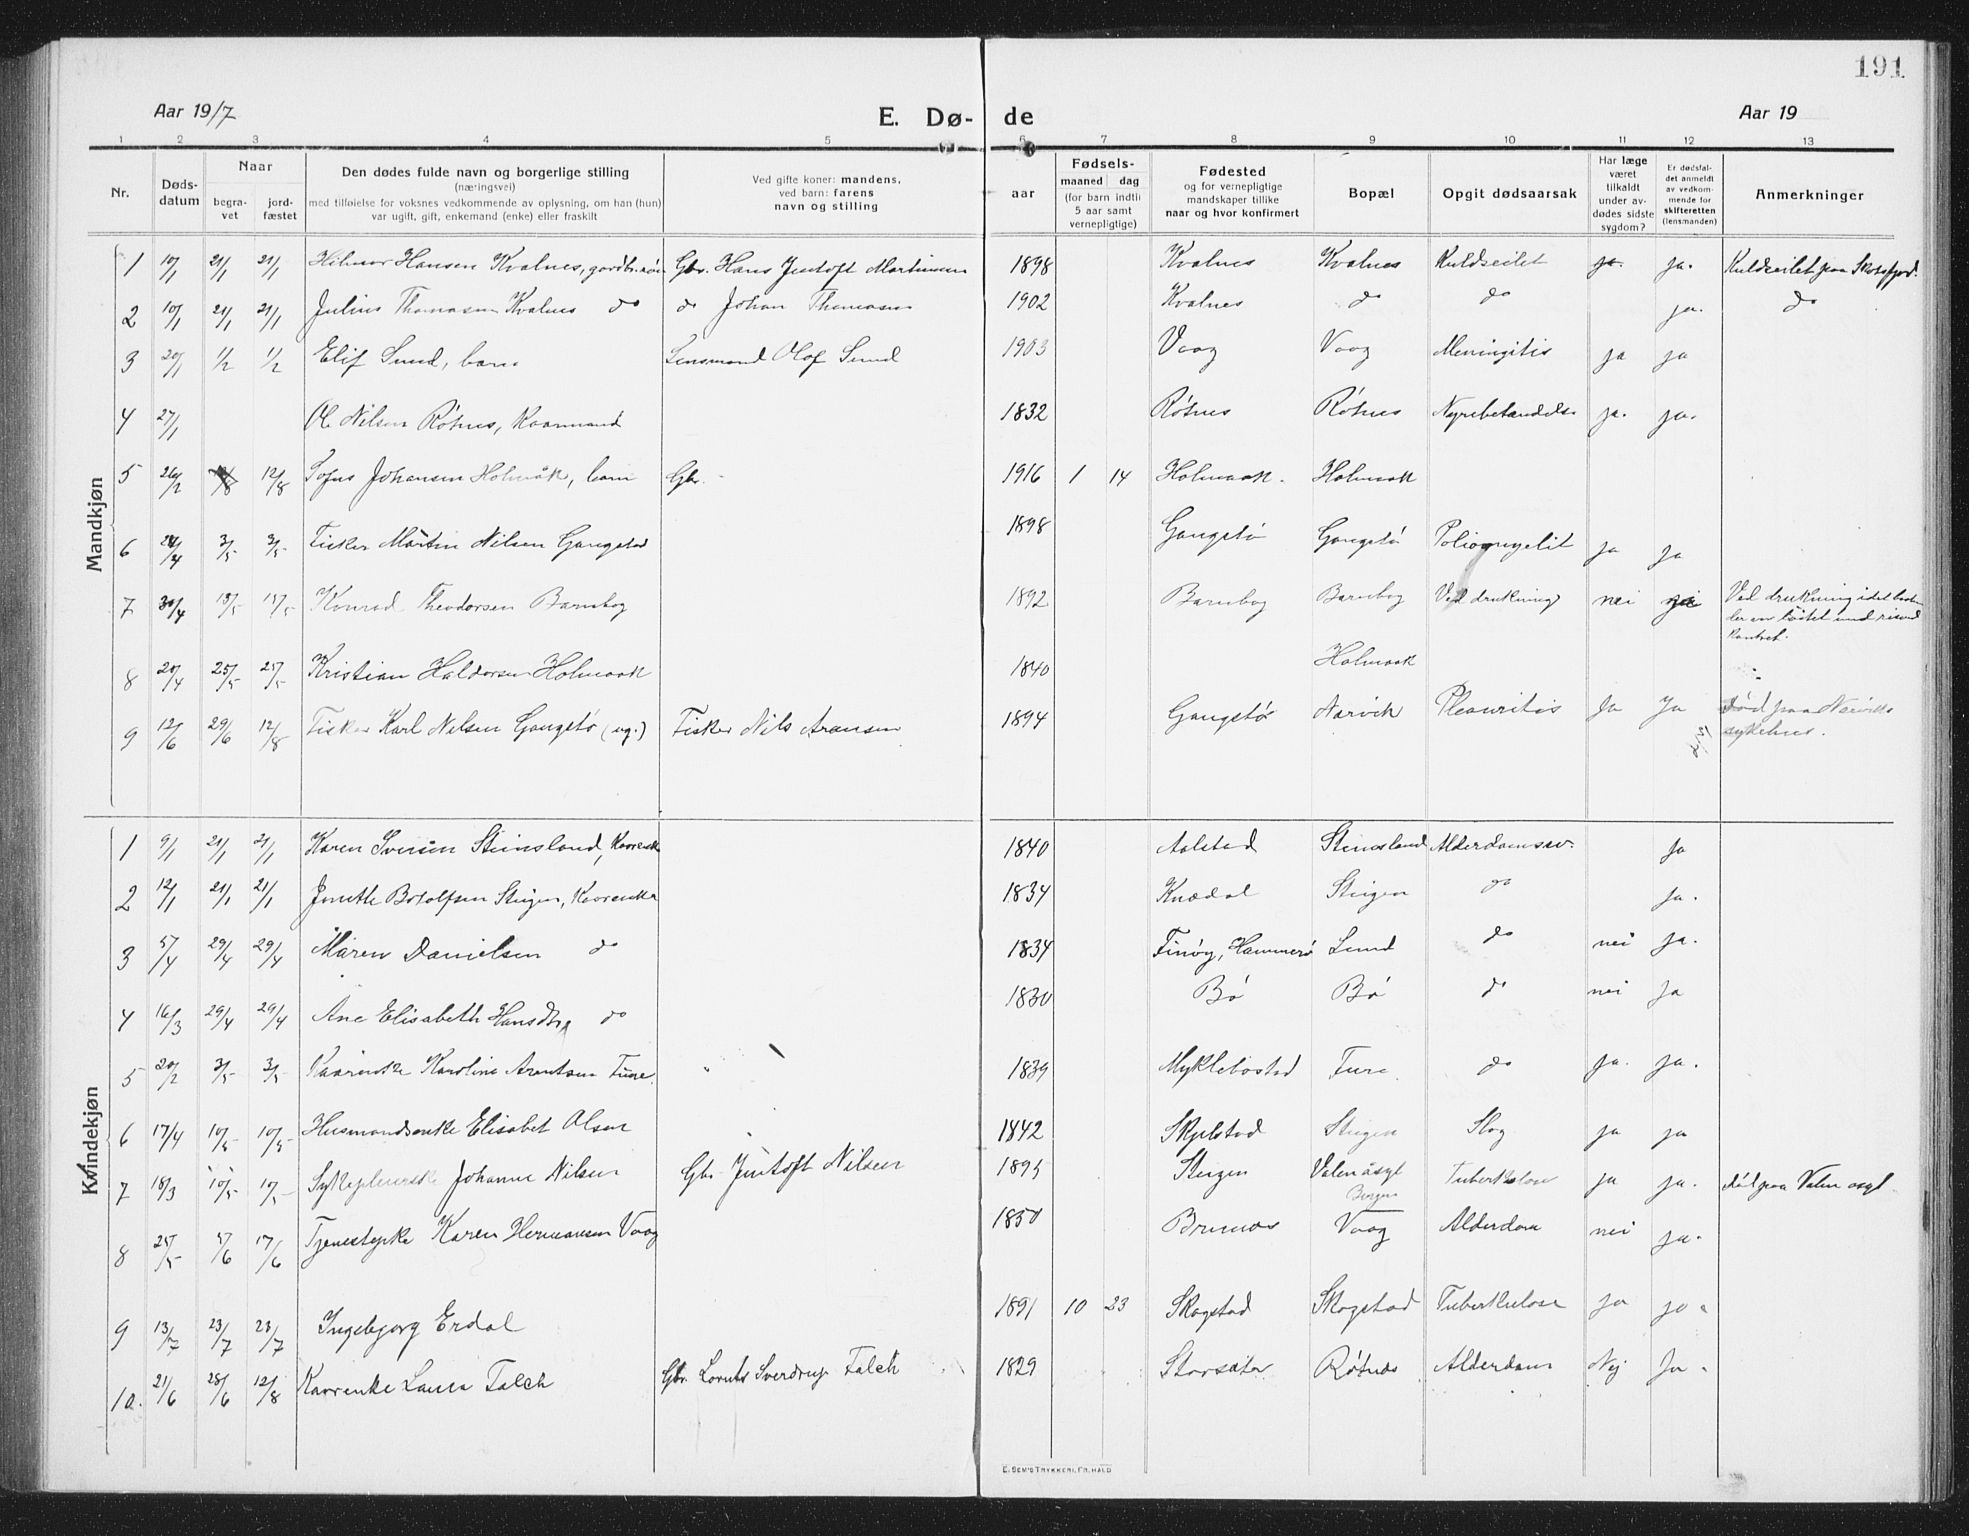 191
Aar 1917 E. Dø- de Aar 19
1 2 3 4 5 6 7 8 9 10 11 12 13
Nr. Døds-datum Naar begra-vet jord-fæstet Den dødes fulde navn og borgerlige stilling (næringsvei) med tilføielse for voksnes vedkommende av oplysning, om han (hun) var ugift, gift, enkemand (enke) eller fraskilt Ved gifte koner: mandens, ved barn: farens navn og stilling aar Fødsels- maaned dag (for barn indtil 5 aar samt vernepligtige) Fødested og for vernepligtige mandskaper tillike naar og hvor konfirmert Bopæl Opgit dødsaarsak Har læge været tilkaldt under av-dødes sidste sygdom? Er dødsfal-det anmeldt av vedkom-mende for skifteretten (lensmanden) Anmerkninger
Mandkjøn
1 10/1 21/1 21/1 Hilmar Hansen Kvalnes, gardbr.søn Gbr. Hans Jentoft Martinsen 1898 Kvalnes Kvalnes Kuldseilet ja. ja. Kuldseilet paa Skotsfjord.
2 10/1 21/1 21/1 Julius Thomasen Kvalnes do do Johan Thomasen 1902 Kvalnes do do ja. do
3 20/1 1/2 1/2 Elif Sund, barn Lensmand Olof Sund 1903 Vaag Vaag Meningitis ja ja
4 27/1 Ol. Nilsen Røtnes, Kaarmand 1832 Røtnes Røtnes Nyrebetændelse ja. ja.
5 26/2 12/8 Tofus Johansen Holmåk, barn Gbr. 1916 1 14 Holmaak. Holmaak
6 24/4 3/5 3/5 Fisker Martin Nilsen Gangstø 1898 Gangstø Gangstø Poliomyelit ja ja
7 30/4 13/5 13/5 Konrad Theodorsen Barnbog 1892 Barnbog Barnbog Ved drukning nei Ved drukning
8 20/4 25/5 25/5 Kristian Haldorsen Holmaak 1840 Holmaak
9 12/6 29/6 12/8 Fisker Karl Nilsen Gangstø (ug.) Fisker Nils Aronsen 1894 Gangstø Narvik Pleuritis Ja Ja Død paa Narviks sykehus.
Kvindekjøn
1 9/1 21/1 21/1 Karen Sversen Steinsland, Kaarenke 1840 Aalstad Steinsland Alderdomssv. Ja
2 12/1 21/1 21/1 Jonette Botolfsen Steigen, Kaarenke 1834 Knædal Steigen do Ja.
3 5/4 29/4 29/4 Maren Danielsen do 1834 Finøy, Hammerø Lund do nei Ja.
4 16/3 29/4 29/4 Ane Elisabeth Hansdtr. do 1830 Bø Bø do nei Ja
5 20/2 3/5 3/5 Kaarenke Karoline Arentsen Fure " 1839 Myklebostad Fure do ja. ja.
6 17/4 10/5 10/5 Husmandsenke Elisabet Olsen 1842 Skjelstad Steigen Slag ja ja
7 18/3 10/5 10/5 Sykepleierske Johanne Nilsen Gbr. Jentoft Nilsen 1895 Steigen Valen asyl Bergen Tuberkulose ja ja. Død paa Valen asyl
8 25/5 5/6 17/6 Tjenestepike Karen Hermansen Vaag 1850 Brennes Vaag Alderdom nei ja.
9 13/7 23/7 23/7 Ingebjorg Erdal 1891 10 23 Skogstad Skogstad Tuberkulose ja ja.
10. 21/6 28/6 12/8 Kaarenke Laura Falch Gbr. Lornts Sverdrup Falch 1829 Storsæter Røtnes Alderdom Nej Ja.
E. SEM'S TRYKKERI, FR.HALD